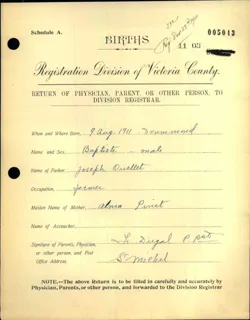 Schedule A.
005013
BIRTHS
11 03
Registration Division of Victoria County.
RETURN OF PHYSICIAN, PARENT, OR OTHER PERSON, TO
DIVISION REGISTRAR.
When and Where Born, 9 Aug. 1911 Drummond
Name and Sex, Baptiste - male
Name of Father, Joseph Ouellet
Occupation, farmer
Maiden Name of Mother, Pinet
Name of Accoucher,
Signature of Parents, Physician,
or other person, and Post
Office Address,
NOTE—The above Return is to be filled in carefully and accurately by
Physician, Parents, or other person, and forwarded to the Division Registrar